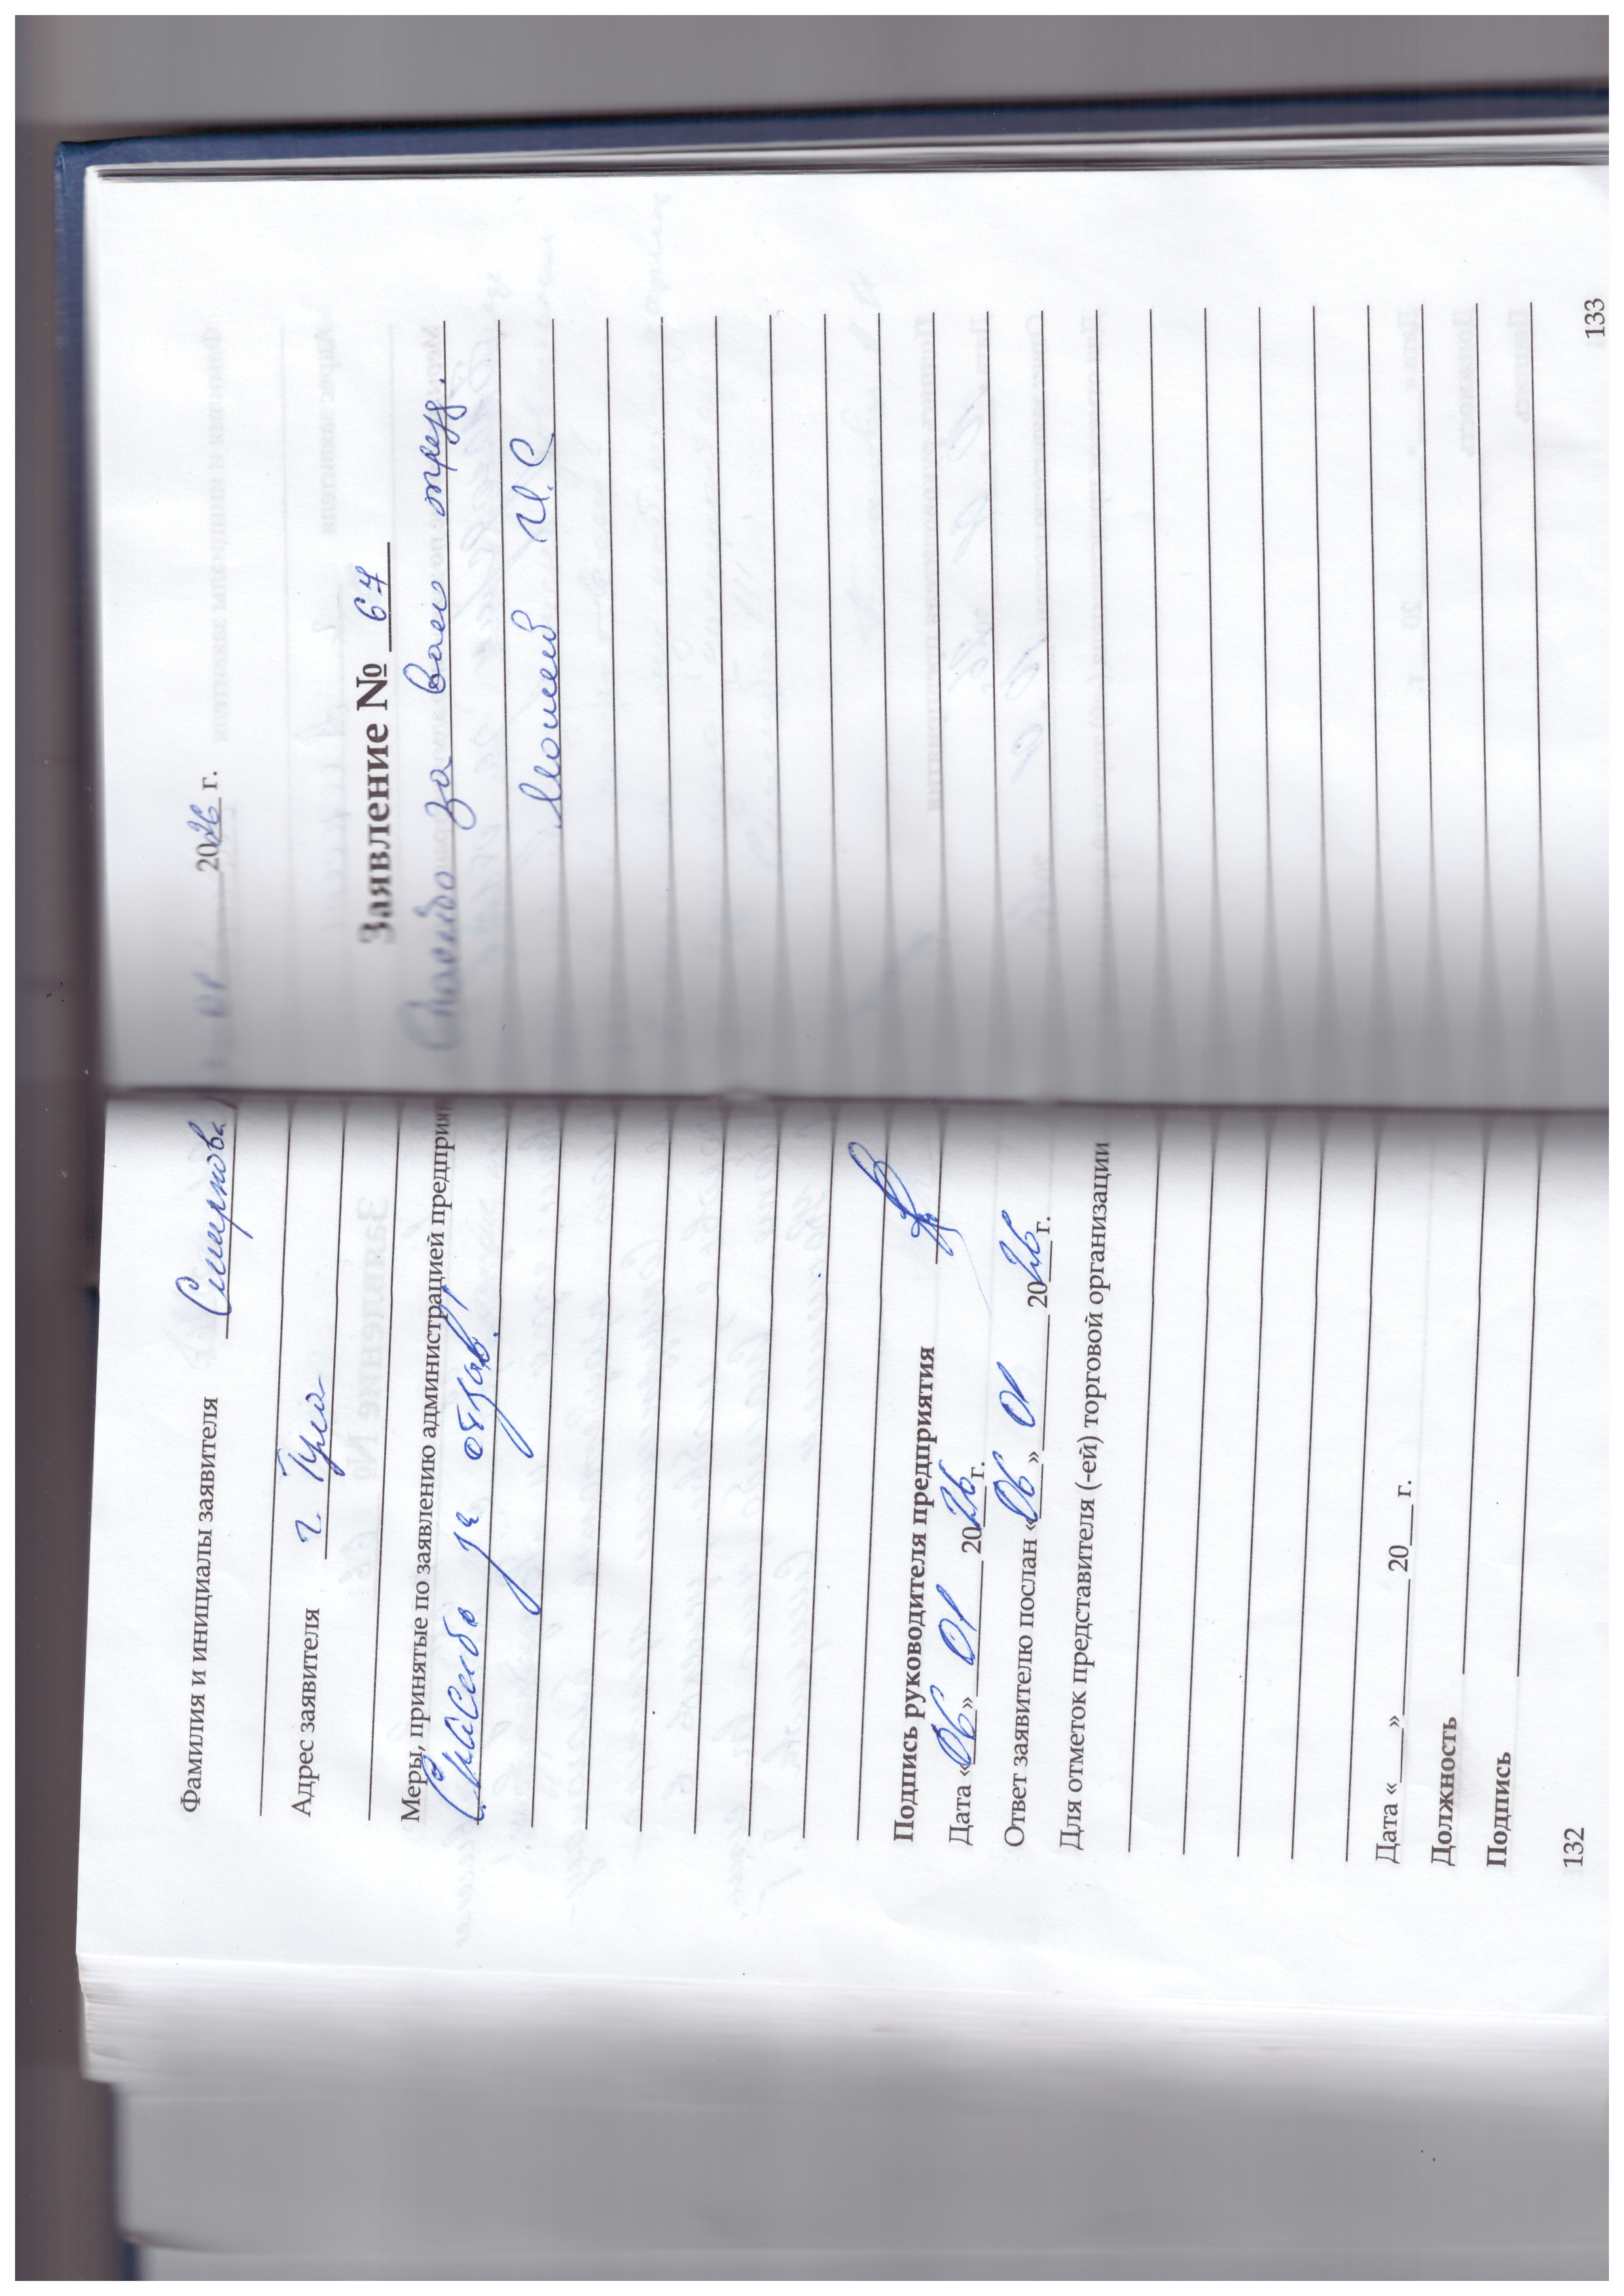 Фамилия и инициалы заявителя Смирнова
Адрес заявителя г. Тула
Меры, принятые по заявлению администрацией предприя
Спасибо за отзыв!
Подпись руководителя предприятия
Дата «06» 01 2026 г.
Ответ заявителю послан «06» 01 2026 г.
Для отметок представителя (-ей) торговой организации
Дата «___» ______ 20___ г.
Должность
Подпись
132
01 2026 г.
Заявление № 67
Спасибо за ваш труд.
И.С
133